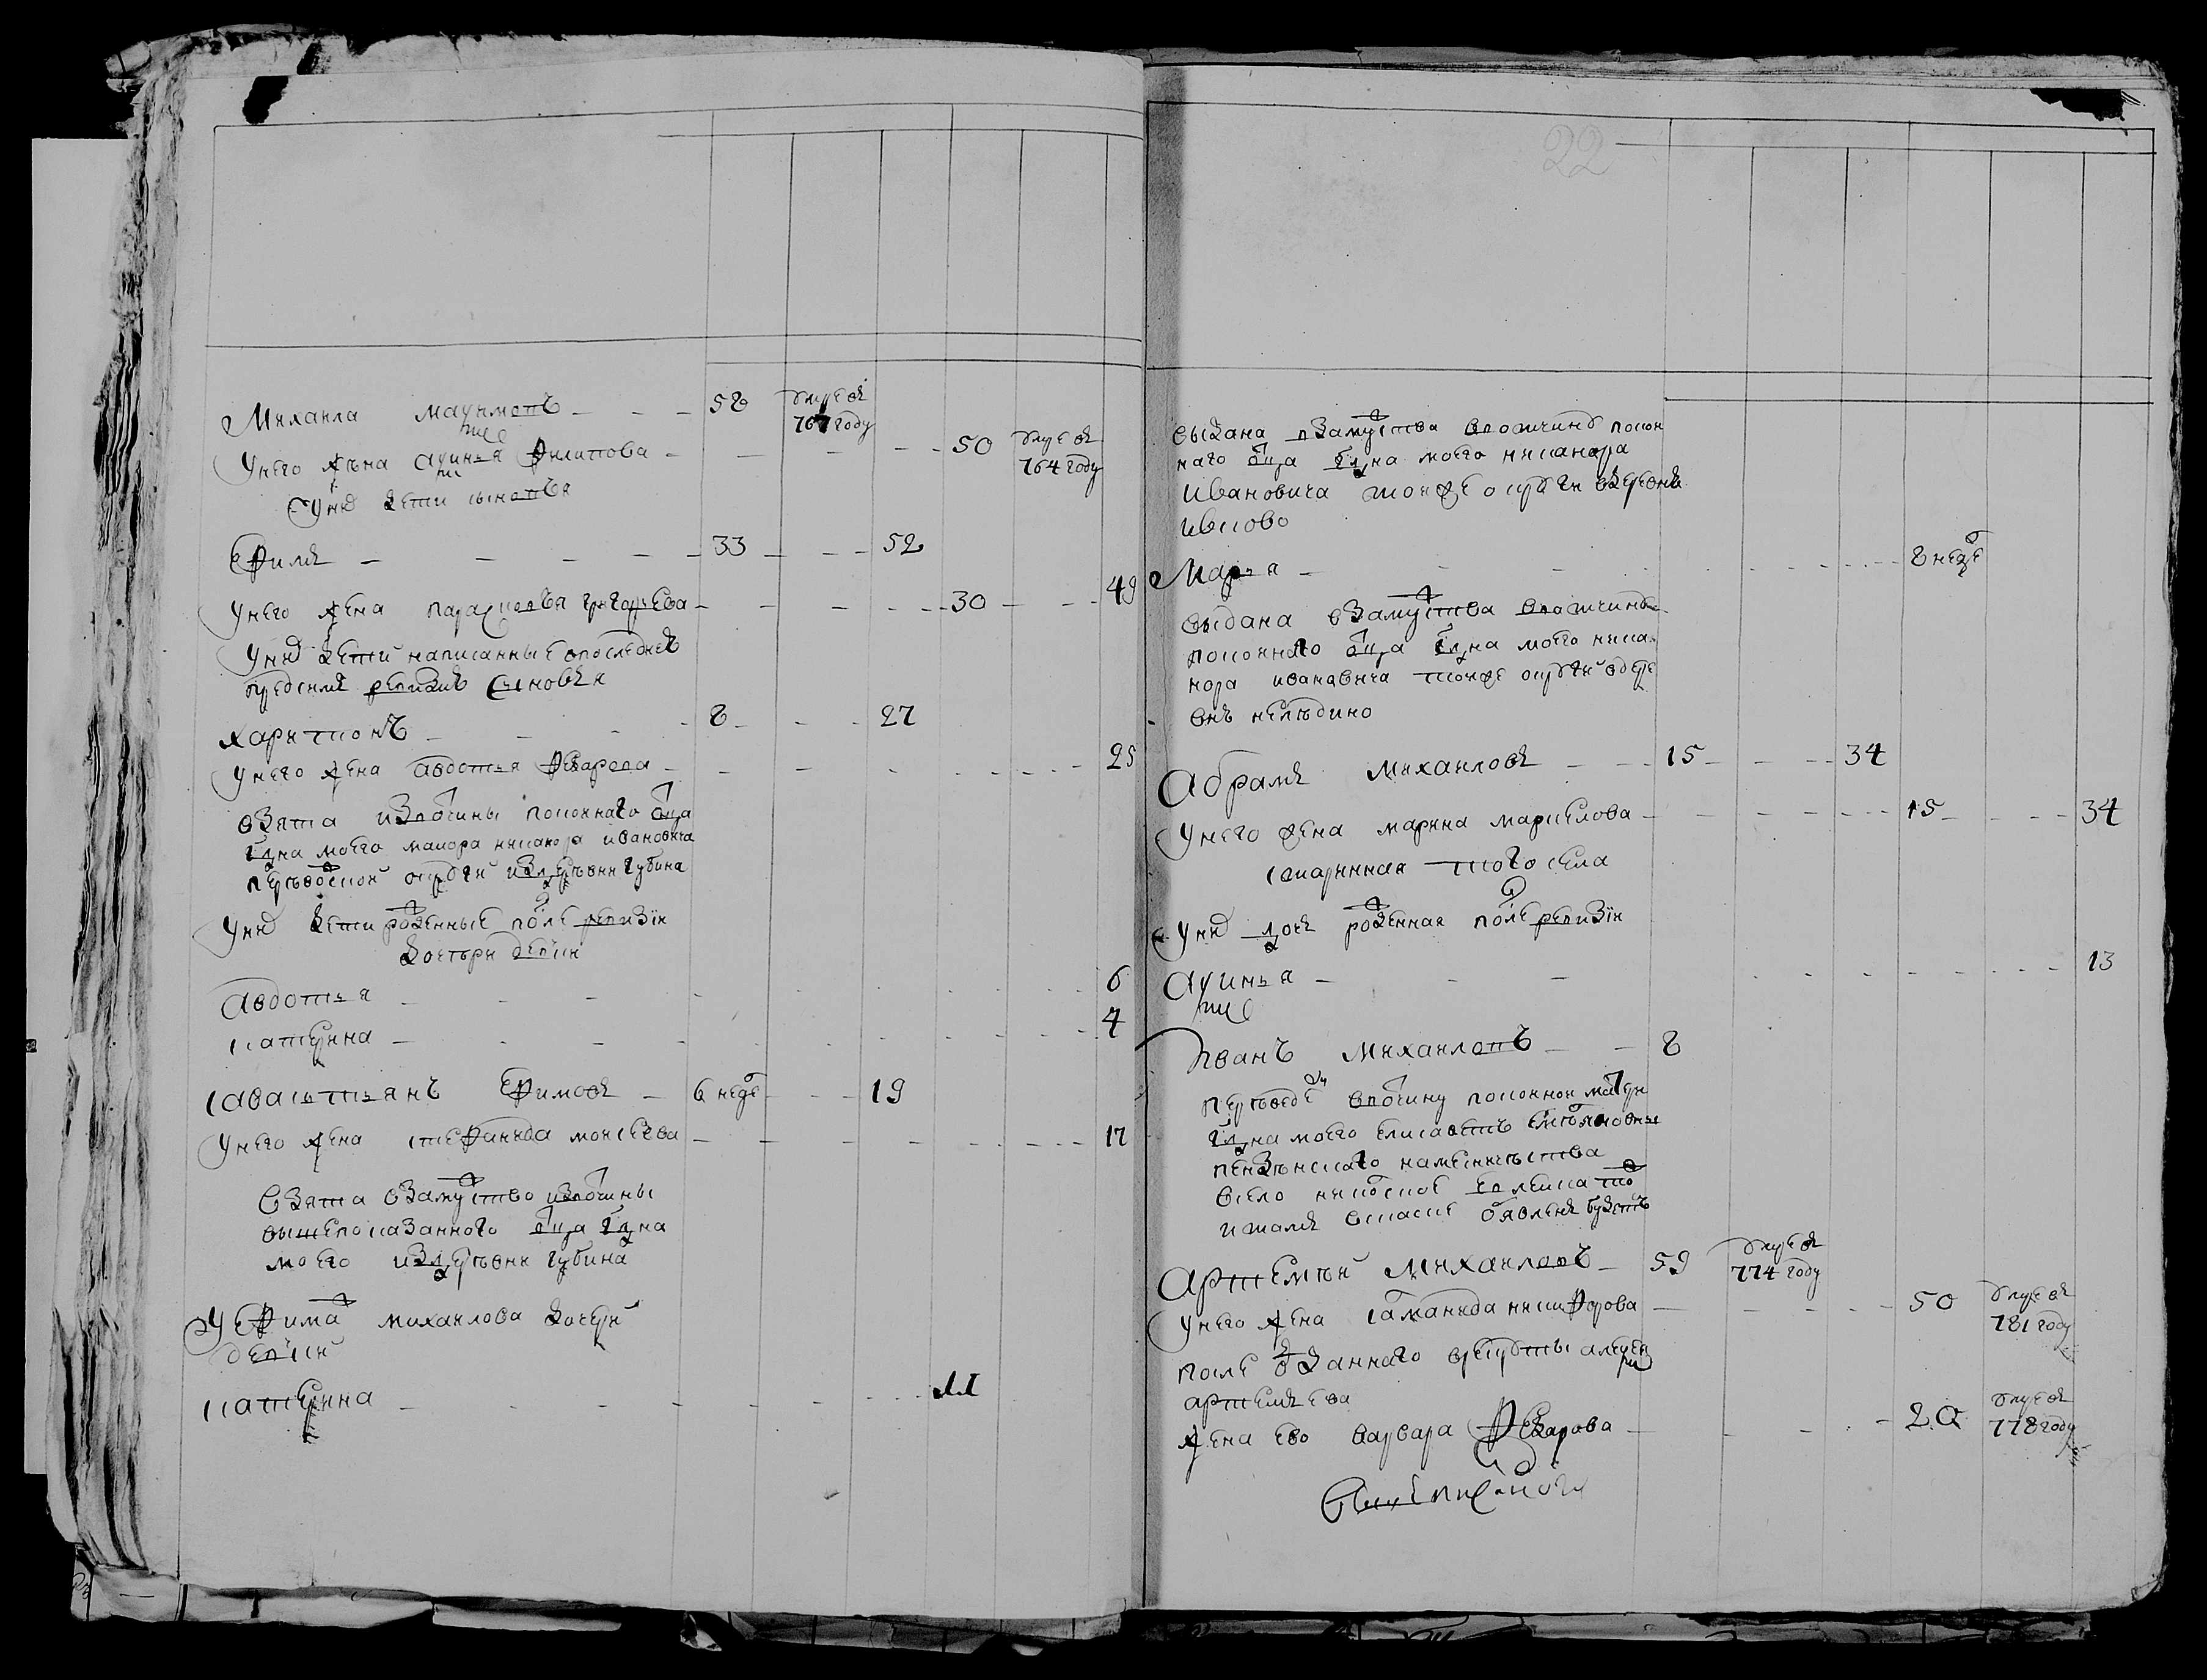 Михаила Максимовъ 58 умре въ
767 году
У него жена Аксинья Филипова 50 умре въ
764 году
У них дети сыновья
Ефимъ 33 52
У него жена парасковья григорьева 30 49
У них дети написанные в последней
пред сим ревизие сыновья
харитонъ 8 27
У него жена авдотья Федарова 25
взята из вотчины покойнаго отца
гдна моего маиора никанора ивановича
деревни губина
У них дети рожденные после ревизiи
дочери девки
авдотья 6
катерина 4
савастьянъ Ефимовъ 6 неде 19
У него жена степанида моисеева 17
Взята в замужство из вотчины
вышепоказанного отца гдна
моего из деревни губина
У Ефима михаилова дочери
девки
катерина 11
22
выдана в замужства в вотчину покои
наго отца гдна моего никанора
Ивановича той же округи в деревню
ивково
Марья 8 неде
выдана в замужства в вотчину
покоинаго отца гдна моего ника
нора ивановича той же округи в дере
внъ нелъдино
Абрамъ Михаиловъ 15 34
У него жена марина маркелова 15 34
старинная того села
У них дочь рожденная после ревизiи
Аксинья 13
Иванъ Михаиловъ 8
переведе в вотчину покоинои матери
гдна моего елисаветы
пензенскаго наместничества
в село никольское
и тамъ в сказке объявленъ будетъ
Артемъи Михаиловъ 59 умре въ
774 году
У него жена саманида никифорова 50 умре въ
781 году
после отданнаго в рекруты алексея
артемьева
жена ево варвара Федарова 20 умре въ
778 году